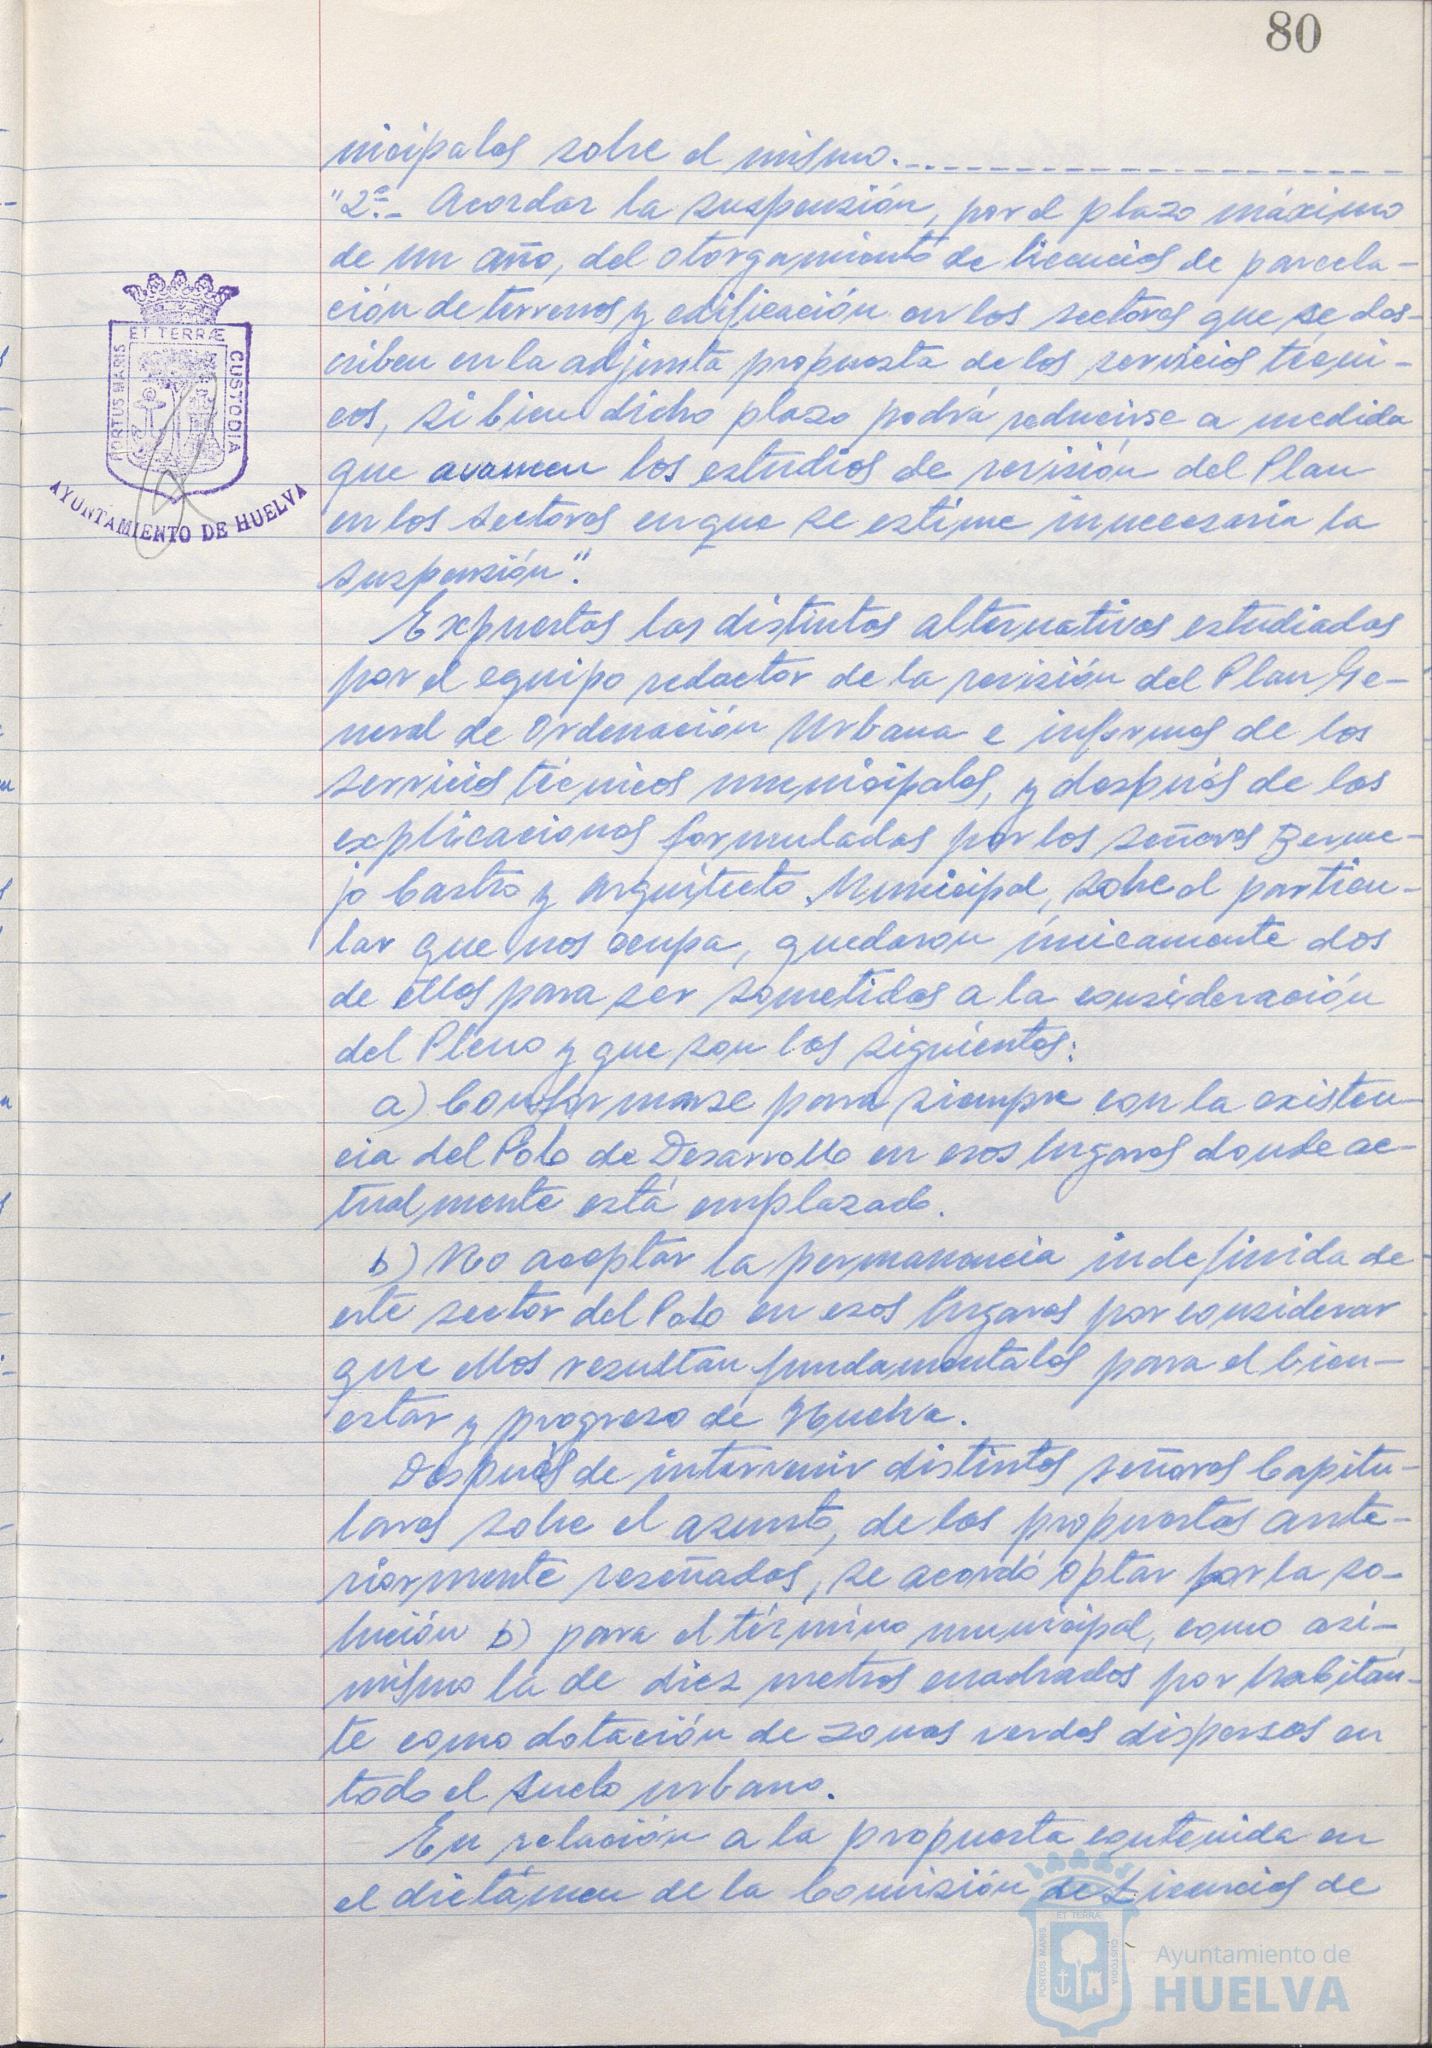 80
nicipales sobre el mismo.
"2º.- Acordar la suspensión, por el plazo máximo
de un año, del otorgamiento de licencias de parcela-
ción de terrenos y edificación en los sectores que se des-
criben en la adjunta propuesta de los servicios técni-
cos, si bien dicho plazo podrá reducirse a medida
que avancen los estudios de revisión del Plan
en los sectores en que se estime innecesaria la
suspensión".
Expuestas las distintas alternativas estudiadas
por el equipo redactor de la revisión del Plan Ge-
neral de Ordenación Urbana e informes de los
servicios técnicos municipales, y después de las
explicaciones formuladas por los señores Berme-
jo Castro y Arquitecto Municipal, sobre el particu-
lar que nos ocupa, quedaron únicamente dos
de ellas para ser sometidas a la consideración
del Pleno y que son las siguientes:
a) Conformarse para siempre con la existen-
cia del Polo de Desarrollo en esos lugares donde ac-
tualmente está emplazado.
b) No aceptar la permanencia indefinida de
este sector del Polo en esos lugares por considerar
que ellos resultan fundamentales para el bien-
estar y progreso de Huelva.
Después de intervenir distintos señores Capitu-
lares sobre el asunto, de las propuestas ante-
riormente reseñadas, se acordó optar por la so-
lución b) para el término municipal, como asi-
mismo la de diez metros cuadrados por habitan-
te como dotación de zonas verdes dispersas en
todo el suelo urbano.
En relación a la propuesta contenida en
el dictámen de la Comisión de Licencias de
PORTUS MARIS ET TERRÆ CUSTODIA
AYUNTAMIENTO DE HUELVA
PORTUS MARIS ET TERRA CUSTODIA
Ayuntamiento de
HUELVA